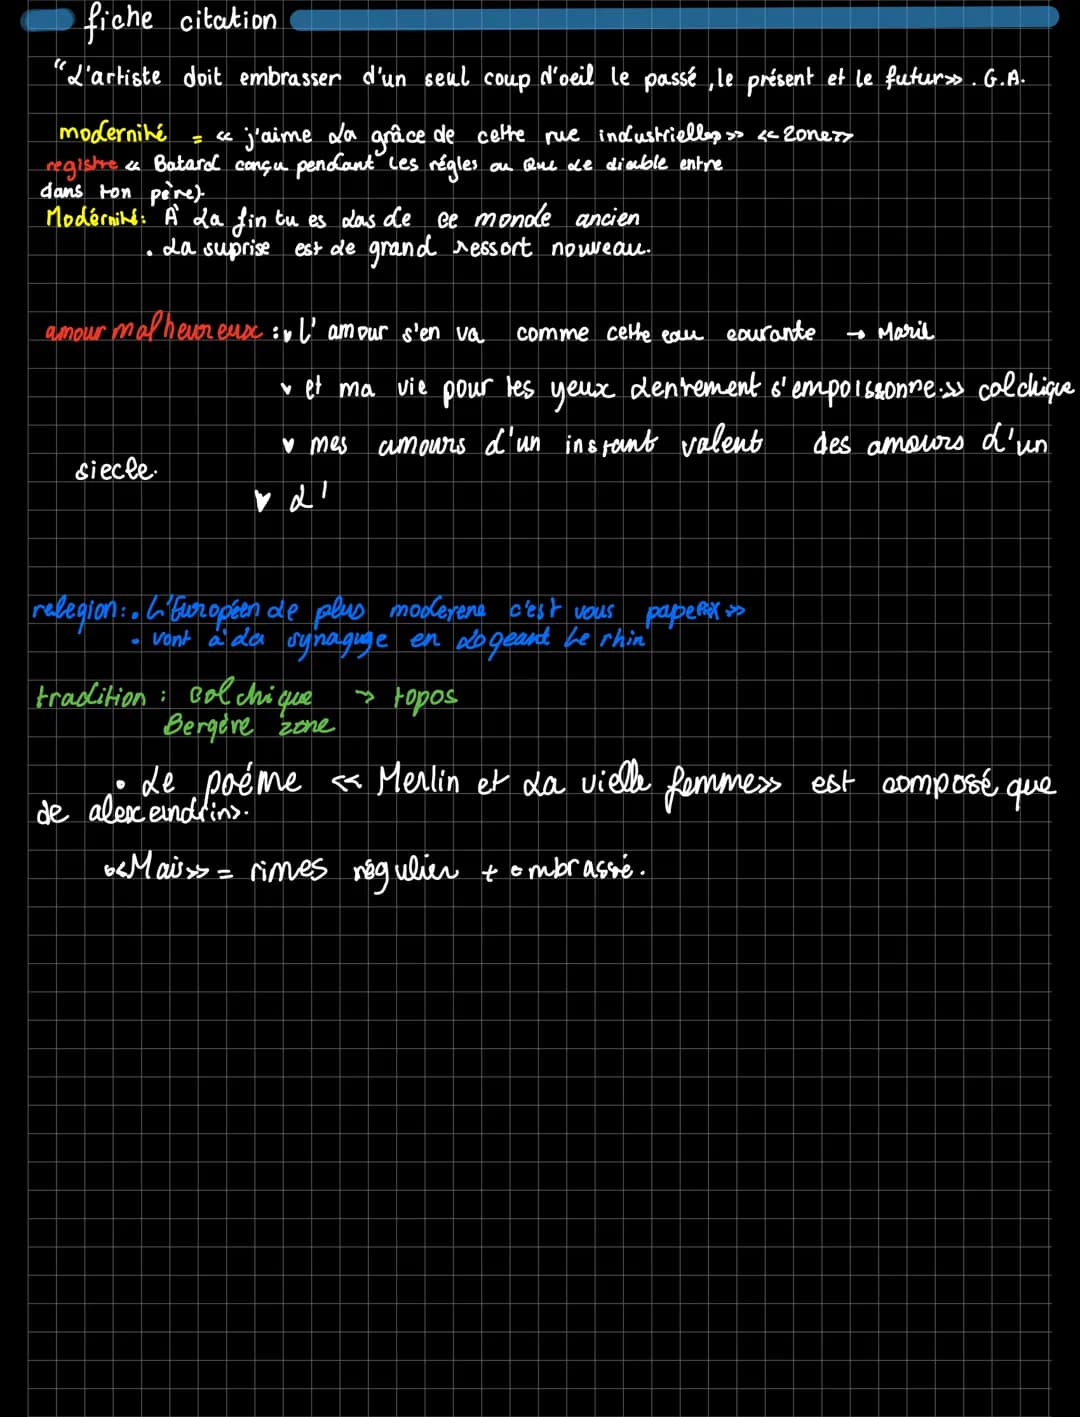 fiche citation
"L'artiste doit embrasser d'un seul coup d'oeil le passé, le présent et le futur». G.A.
modernité = « j'aime la grâce de cette rue industrielle » «Zone»
registre « Batard conçu pendant les régles ou Que le diable entre
dans ton père}
Modérnité: À la fin tu es las de ce monde ancien
• La suprise est le grand ressort nouveau.
amour malheureux : L'amour s'en va comme cette eau courante → Marie
et ma vie pour tes yeux lentement s'empoissonne.» colchique
mes amours d'un instant valent des amours d'un
siecle.
L'
relegion: • L'Européen le plus moderene c'est vous pape Pix »
• vont à la synaguge en logeant le rhin
tradition : colchique → topos
Bergère zone
• Le poéme « Merlin et la vielle femme» est composé que
de alexeindrins.
«Mai» = rimes régulier + embrassé.